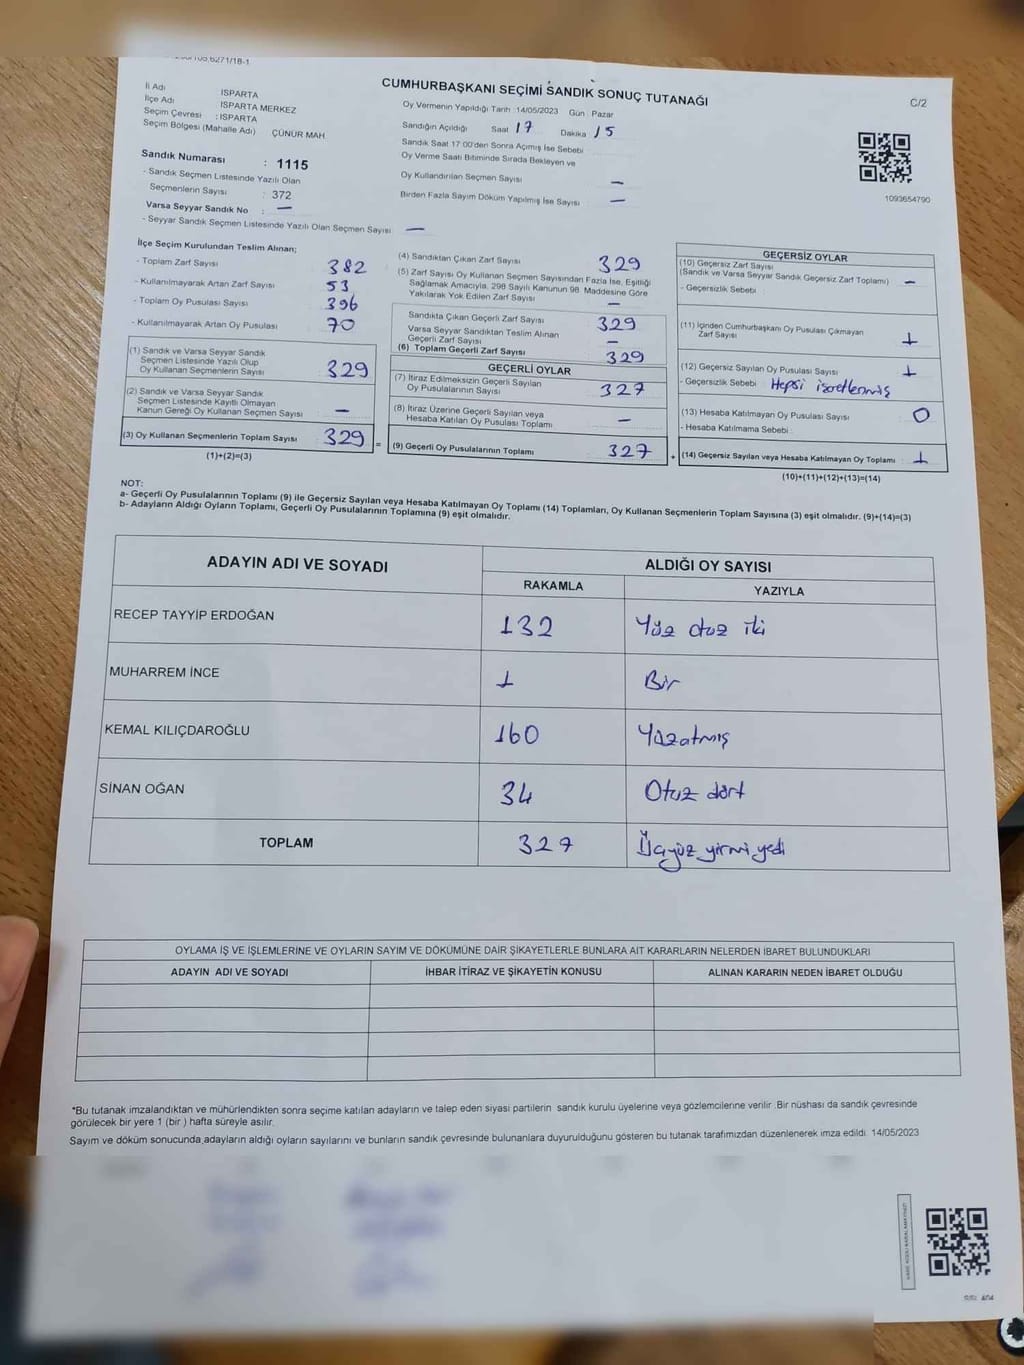 CUMHURBAŞKANI SEÇİMİ SANDIK SONUÇ TUTANAĞI
C/2
İl Adı ISPARTA
İlçe Adı ISPARTA MERKEZ
Seçim Çevresi : ISPARTA
Seçim Bölgesi (Mahalle Adı) ÇÜNÜR MAH
Sandık Numarası : 1115
- Sandık Seçmen Listesinde Yazılı Olan
Seçmenlerin Sayısı : 372
Varsa Seyyar Sandık No : —
- Seyyar Sandık Seçmen Listesinde Yazılı Olan Seçmen Sayısı —
Oy Vermenin Yapıldığı Tarih :14/05/2023 Gün : Pazar
Sandığın Açıldığı Saat 17 Dakika 15
Sandık Saat 17 00'den Sonra Açımış İse Sebebi
Oy Verme Saati Bitiminde Sırada Bekleyen ve
Oy Kullandırılan Seçmen Sayısı —
Birden Fazla Sayım Döküm Yapılmış İse Sayısı —
1093654790
İlçe Seçim Kurulundan Teslim Alınan;
- Toplam Zarf Sayısı 382
- Kullanılmayarak Artan Zarf Sayısı 53
- Toplam Oy Pusulası Sayısı 396
- Kullanılmayarak Artan Oy Pusulası 70
(1) Sandık ve Varsa Seyyar Sandık
Seçmen Listesinde Yazılı Olup
Oy Kullanan Seçmenlerin Sayısı 329
(2) Sandık ve Varsa Seyyar Sandık
Seçmen Listesinde Kayıtlı Olmayan
Kanun Gereği Oy Kullanan Seçmen Sayısı —
(3) Oy Kullanan Seçmenlerin Toplam Sayısı 329 =
(1)+(2)=(3)
(4) Sandıktan Çıkan Zarf Sayısı 329
(5) Zarf Sayısı Oy Kullanan Seçmen Sayısından Fazla İse, Eşitliği
Sağlamak Amacıyla, 298 Sayılı Kanunun 98. Maddesine Göre
Yakılarak Yok Edilen Zarf Sayısı —
Sandıkta Çıkan Geçerli Zarf Sayısı 329
Varsa Seyyar Sandıktan Teslim Alınan
Geçerli Zarf Sayısı —
(6) Toplam Geçerli Zarf Sayısı 329
GEÇERLİ OYLAR
(7) İtiraz Edilmeksizin Geçerli Sayılan
Oy Pusulalarının Sayısı 327
(8) İtiraz Üzerine Geçerli Sayılan veya
Hesaba Katılan Oy Pusulası Toplamı —
(9) Geçerli Oy Pusulalarının Toplamı 327 +
GEÇERSİZ OYLAR
(10) Geçersiz Zarf Sayısı
(Sandık ve Varsa Seyyar Sandık Geçersiz Zarf Toplamı) —
- Geçersizlik Sebebi
(11) İçinden Cumhurbaşkanı Oy Pusulası Çıkmayan
Zarf Sayısı 1
(12) Geçersiz Sayılan Oy Pusulası Sayısı 1
- Geçersizlik Sebebi Hepsi işaretlenmiş
(13) Hesaba Katılmayan Oy Pusulası Sayısı 0
- Hesaba Katılmama Sebebi :
(14) Geçersiz Sayılan veya Hesaba Katılmayan Oy Toplamı : 1
(10)+(11)+(12)+(13)=(14)
NOT:
a- Geçerli Oy Pusulalarının Toplamı (9) ile Geçersiz Sayılan veya Hesaba Katılmayan Oy Toplamı (14) Toplamları, Oy Kullanan Seçmenlerin Toplam Sayısına (3) eşit olmalıdır. (9)+(14)=(3)
b- Adayların Aldığı Oyların Toplamı, Geçerli Oy Pusulalarının Toplamına (9) eşit olmalıdır.
ADAYIN ADI VE SOYADI ALDIĞI OY SAYISI
RAKAMLA YAZIYLA
RECEP TAYYİP ERDOĞAN 132 Yüz otuz iki
MUHARREM İNCE 1 Bir
KEMAL KILIÇDAROĞLU 160 Yüzatmış
SİNAN OĞAN 34 Otuz dört
TOPLAM 327 Üçyüz yirmi yedi
OYLAMA İŞ VE İŞLEMLERİNE VE OYLARIN SAYIM VE DÖKÜMÜNE DAİR ŞİKAYETLERLE BUNLARA AİT KARARLARIN NELERDEN İBARET BULUNDUKLARI
ADAYIN ADI VE SOYADI İHBAR İTİRAZ VE ŞİKAYETİN KONUSU ALINAN KARARIN NEDEN İBARET OLDUĞU
*Bu tutanak imzalandıktan ve mühürlendikten sonra seçime katılan adayların ve talep eden siyasi partilerin sandık kurulu üyelerine veya gözlemcilerine verilir .Bir nüshası da sandık çevresinde
görülecek bir yere 1 (bir ) hafta süreyle asılır.
Sayım ve döküm sonucunda,adayların aldığı oyların sayılarını ve bunların sandık çevresinde bulunanlara duyurulduğunu gösteren bu tutanak tarafımızdan düzenlenerek imza edildi. 14/05/2023